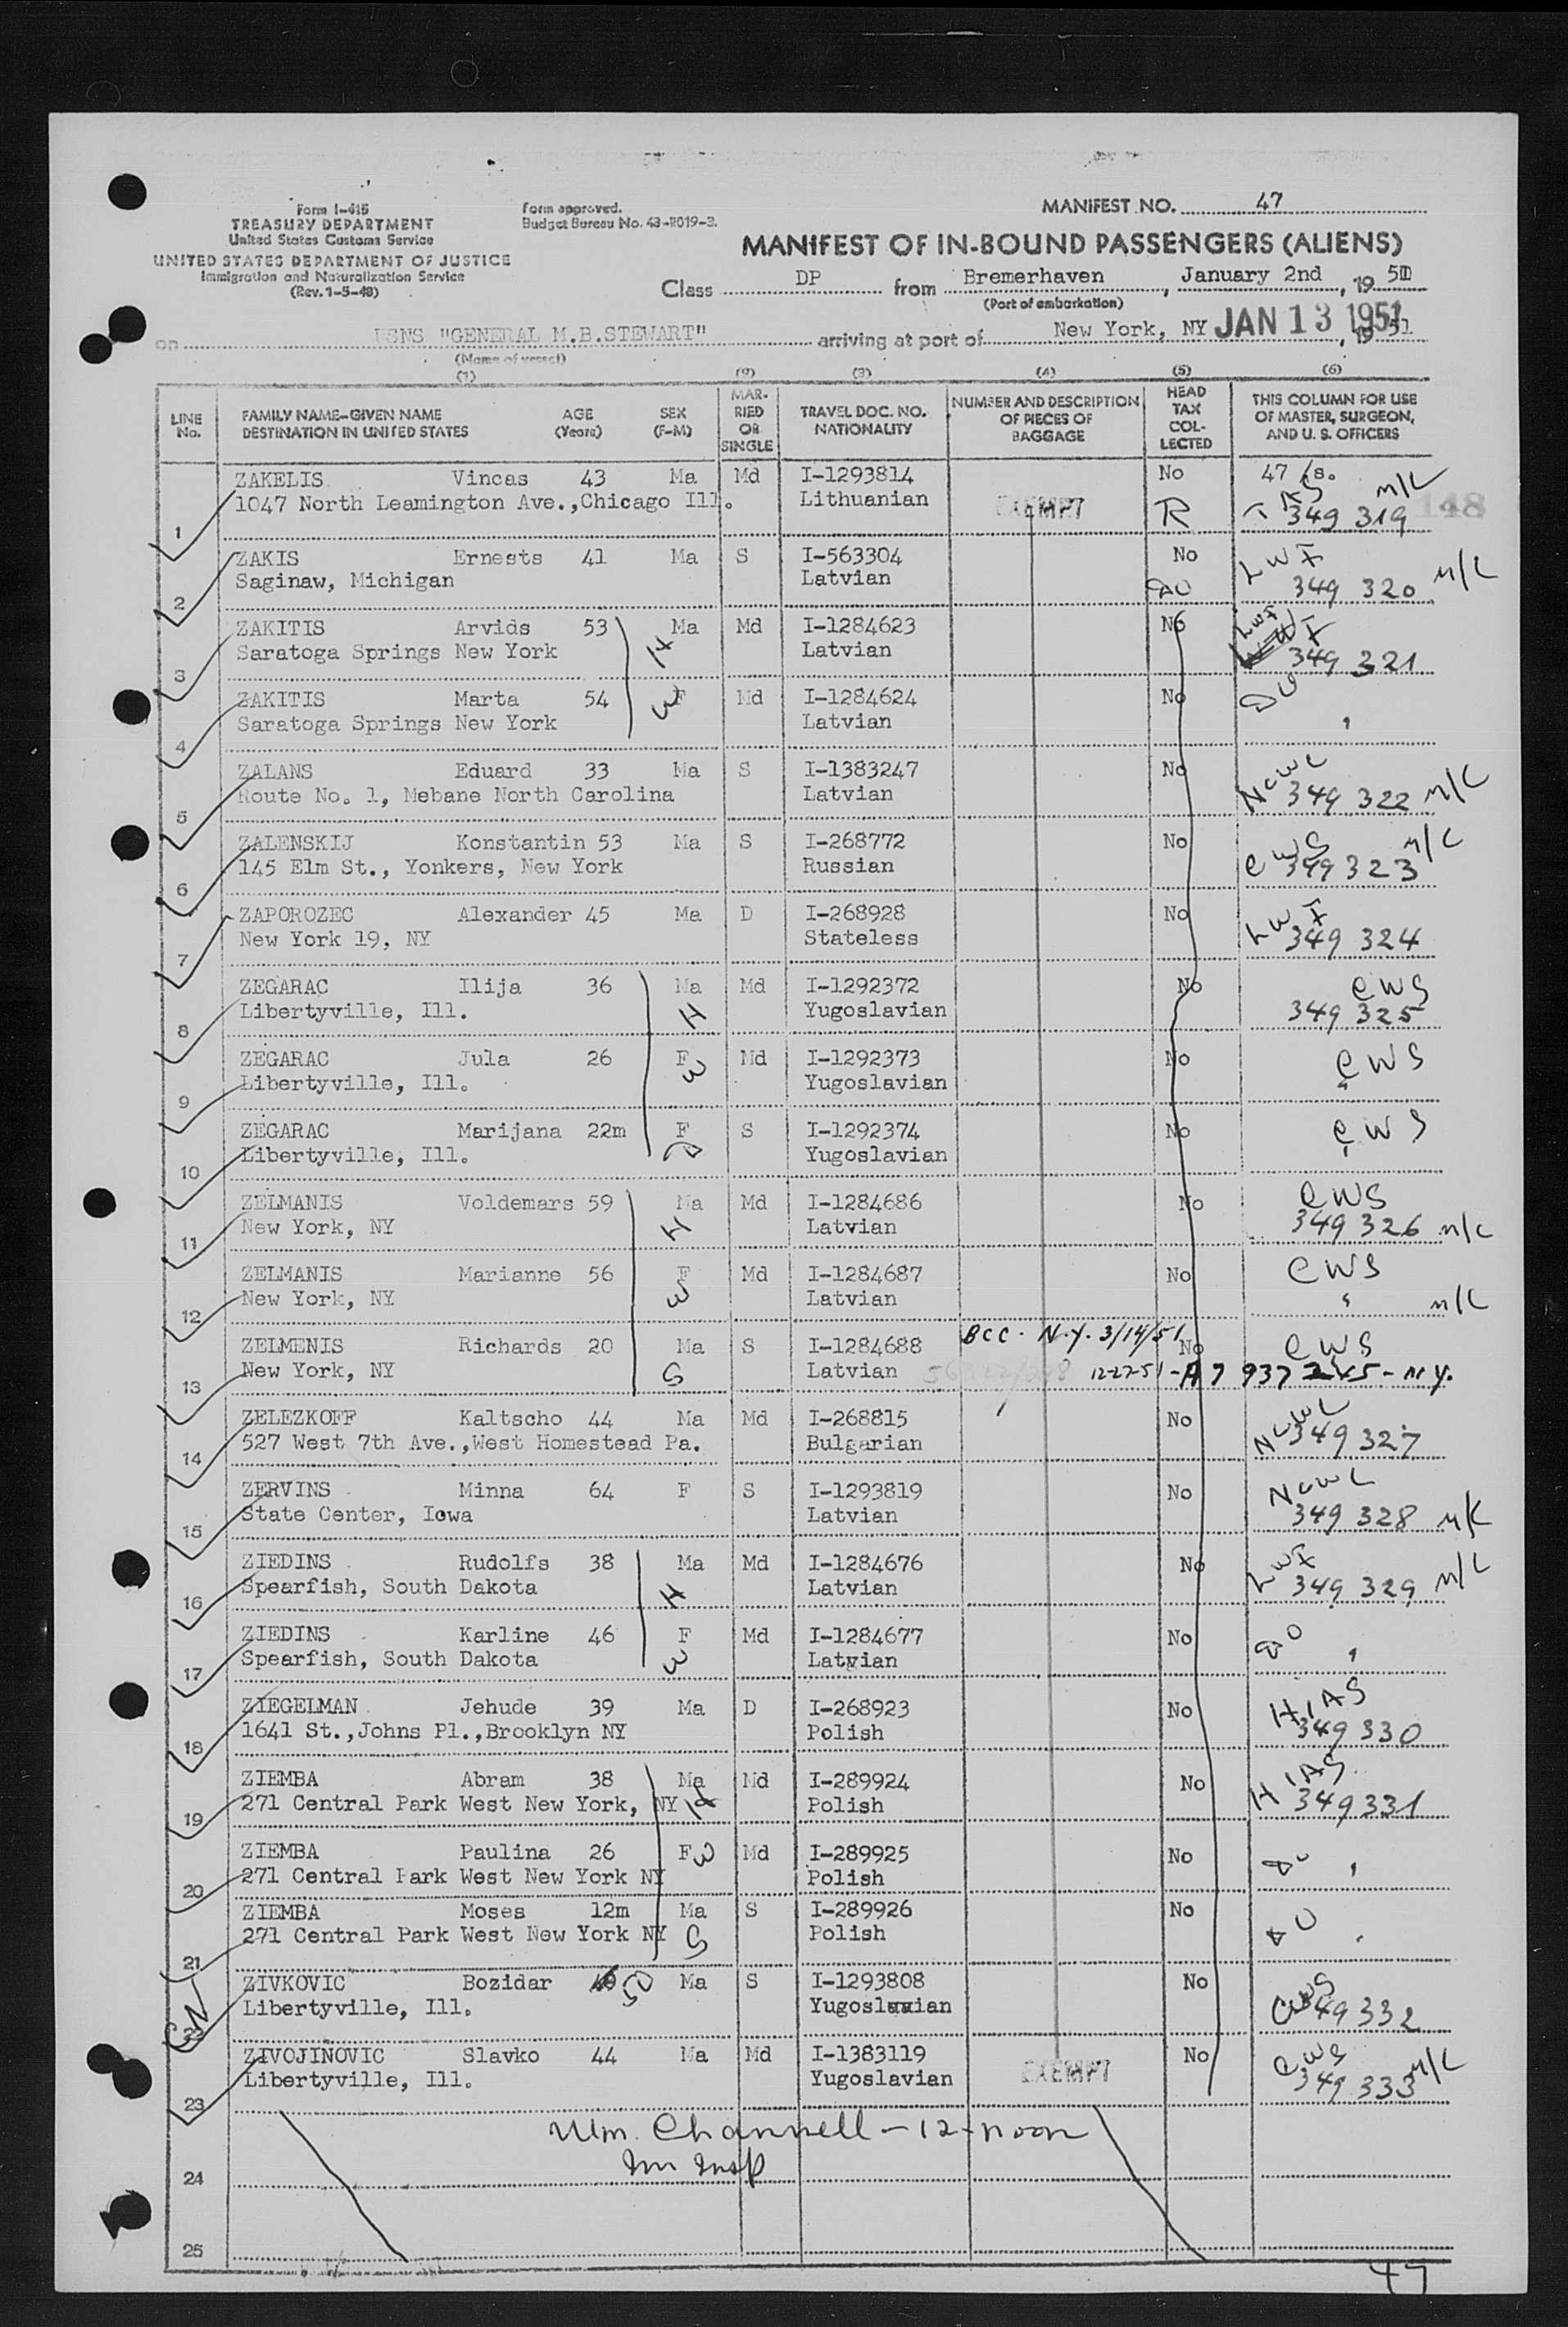 Form I-415
TREASURY DEPARTMENT
United States Customs Service
UNITED STATES DEPARTMENT OF JUSTICE
Immigration and Naturalization Service
(Rev. 1-5-48)
Form approved.
Budget Bureau No. 43-R019-3.
MANIFEST NO. 47
MANIFEST OF IN-BOUND PASSENGERS (ALIENS)
Class DP from Bremerhaven, January 2nd, 19 5
(Port of embarkation)
on USNS "GENERAL M.B.STEWART" arriving at port of New York, NY JAN 13 1951, 19 51
(Name of vessel)
(1) (2) (3) (4) (5) (6)
LINE No. FAMILY NAME-GIVEN NAME DESTINATION IN UNITED STATES AGE (Years) SEX (F-M) MARRIED OR SINGLE TRAVEL DOC. NO. NATIONALITY NUMBER AND DESCRIPTION OF PIECES OF BAGGAGE HEAD TAX COLLECTED THIS COLUMN FOR USE OF MASTER, SURGEON, AND U. S. OFFICERS
ZAKELIS Vincas 43 Ma Md I-1293814 No 47
1 1047 North Leamington Ave.,Chicago Ill. Lithuanian EXEMPT R 349 319 M/C 148
ZAKIS Ernests 41 Ma S I-563304 No LWF
2 Saginaw, Michigan Latvian 349 320 M/C
ZAKITIS Arvids 53 Ma Md I-1284623 No LWF
3 Saratoga Springs New York H Latvian 349 321
ZAKITIS Marta 54 F Md I-1284624 No DO
4 Saratoga Springs New York W Latvian "
ZALANS Eduard 33 Ma S I-1383247 No NCWC
5 Route No. 1, Mebane North Carolina Latvian 349 322 M/C
ZALENSKIJ Konstantin 53 Ma S I-268772 No CWS M/C
6 145 Elm St., Yonkers, New York Russian 349 323
ZAPOROZEC Alexander 45 Ma D I-268928 No LWF
7 New York 19, NY Stateless 349 324
ZEGARAC Ilija 36 Ma Md I-1292372 No CWS
8 Libertyville, Ill. H Yugoslavian 349 325
ZEGARAC Jula 26 F Md I-1292373 No CWS
9 Libertyville, Ill. W Yugoslavian "
ZEGARAC Marijana 22m F S I-1292374 No CWS
10 Libertyville, Ill. D Yugoslavian "
ZELMANIS Voldemars 59 Ma Md I-1284686 No CWS
11 New York, NY H Latvian 349 326 M/C
ZELMANIS Marianne 56 F Md I-1284687 No CWS
12 New York, NY W Latvian " M/C
ZELMENIS Richards 20 Ma S I-1284688 BCC. N.Y. 3/14/51 No CWS
13 New York, NY S Latvian 12-27-51 - A7 937 245 - N.Y.
ZELEZKOFF Kaltscho 44 Ma Md I-268815 No NCWC
14 527 West 7th Ave.,West Homestead Pa. Bulgarian 349 327
ZERVINS Minna 64 F S I-1293819 No NCWC
15 State Center, Iowa Latvian 349 328 M/C
ZIEDINS Rudolfs 38 Ma Md I-1284676 No LWF
16 Spearfish, South Dakota H Latvian 349 329 M/C
ZIEDINS Karline 46 F Md I-1284677 No DO
17 Spearfish, South Dakota W Latvian "
ZIEGELMAN Jehude 39 Ma D I-268923 No HIAS
18 1641 St.,Johns Pl.,Brooklyn NY Polish 349 330
ZIEMBA Abram 38 Ma Md I-289924 No HIAS
19 271 Central Park West New York, NY H Polish 349 331
ZIEMBA Paulina 26 F W Md I-289925 No DO
20 271 Central Park West New York NY Polish "
ZIEMBA Moses 12m Ma S I-289926 No DO
21 271 Central Park West New York NY S Polish "
ZIVKOVIC Bozidar 50 Ma S I-1293808 No CWS
Libertyville, Ill. 349 332
ZIVOJINOVIC Slavko 44 Ma Md I-1383119 No CWS
23 Libertyville, Ill. Yugoslavian EXEMPT 349 333 M/C
Wm. Channell - 12-noon
24 Im Insp
25
47